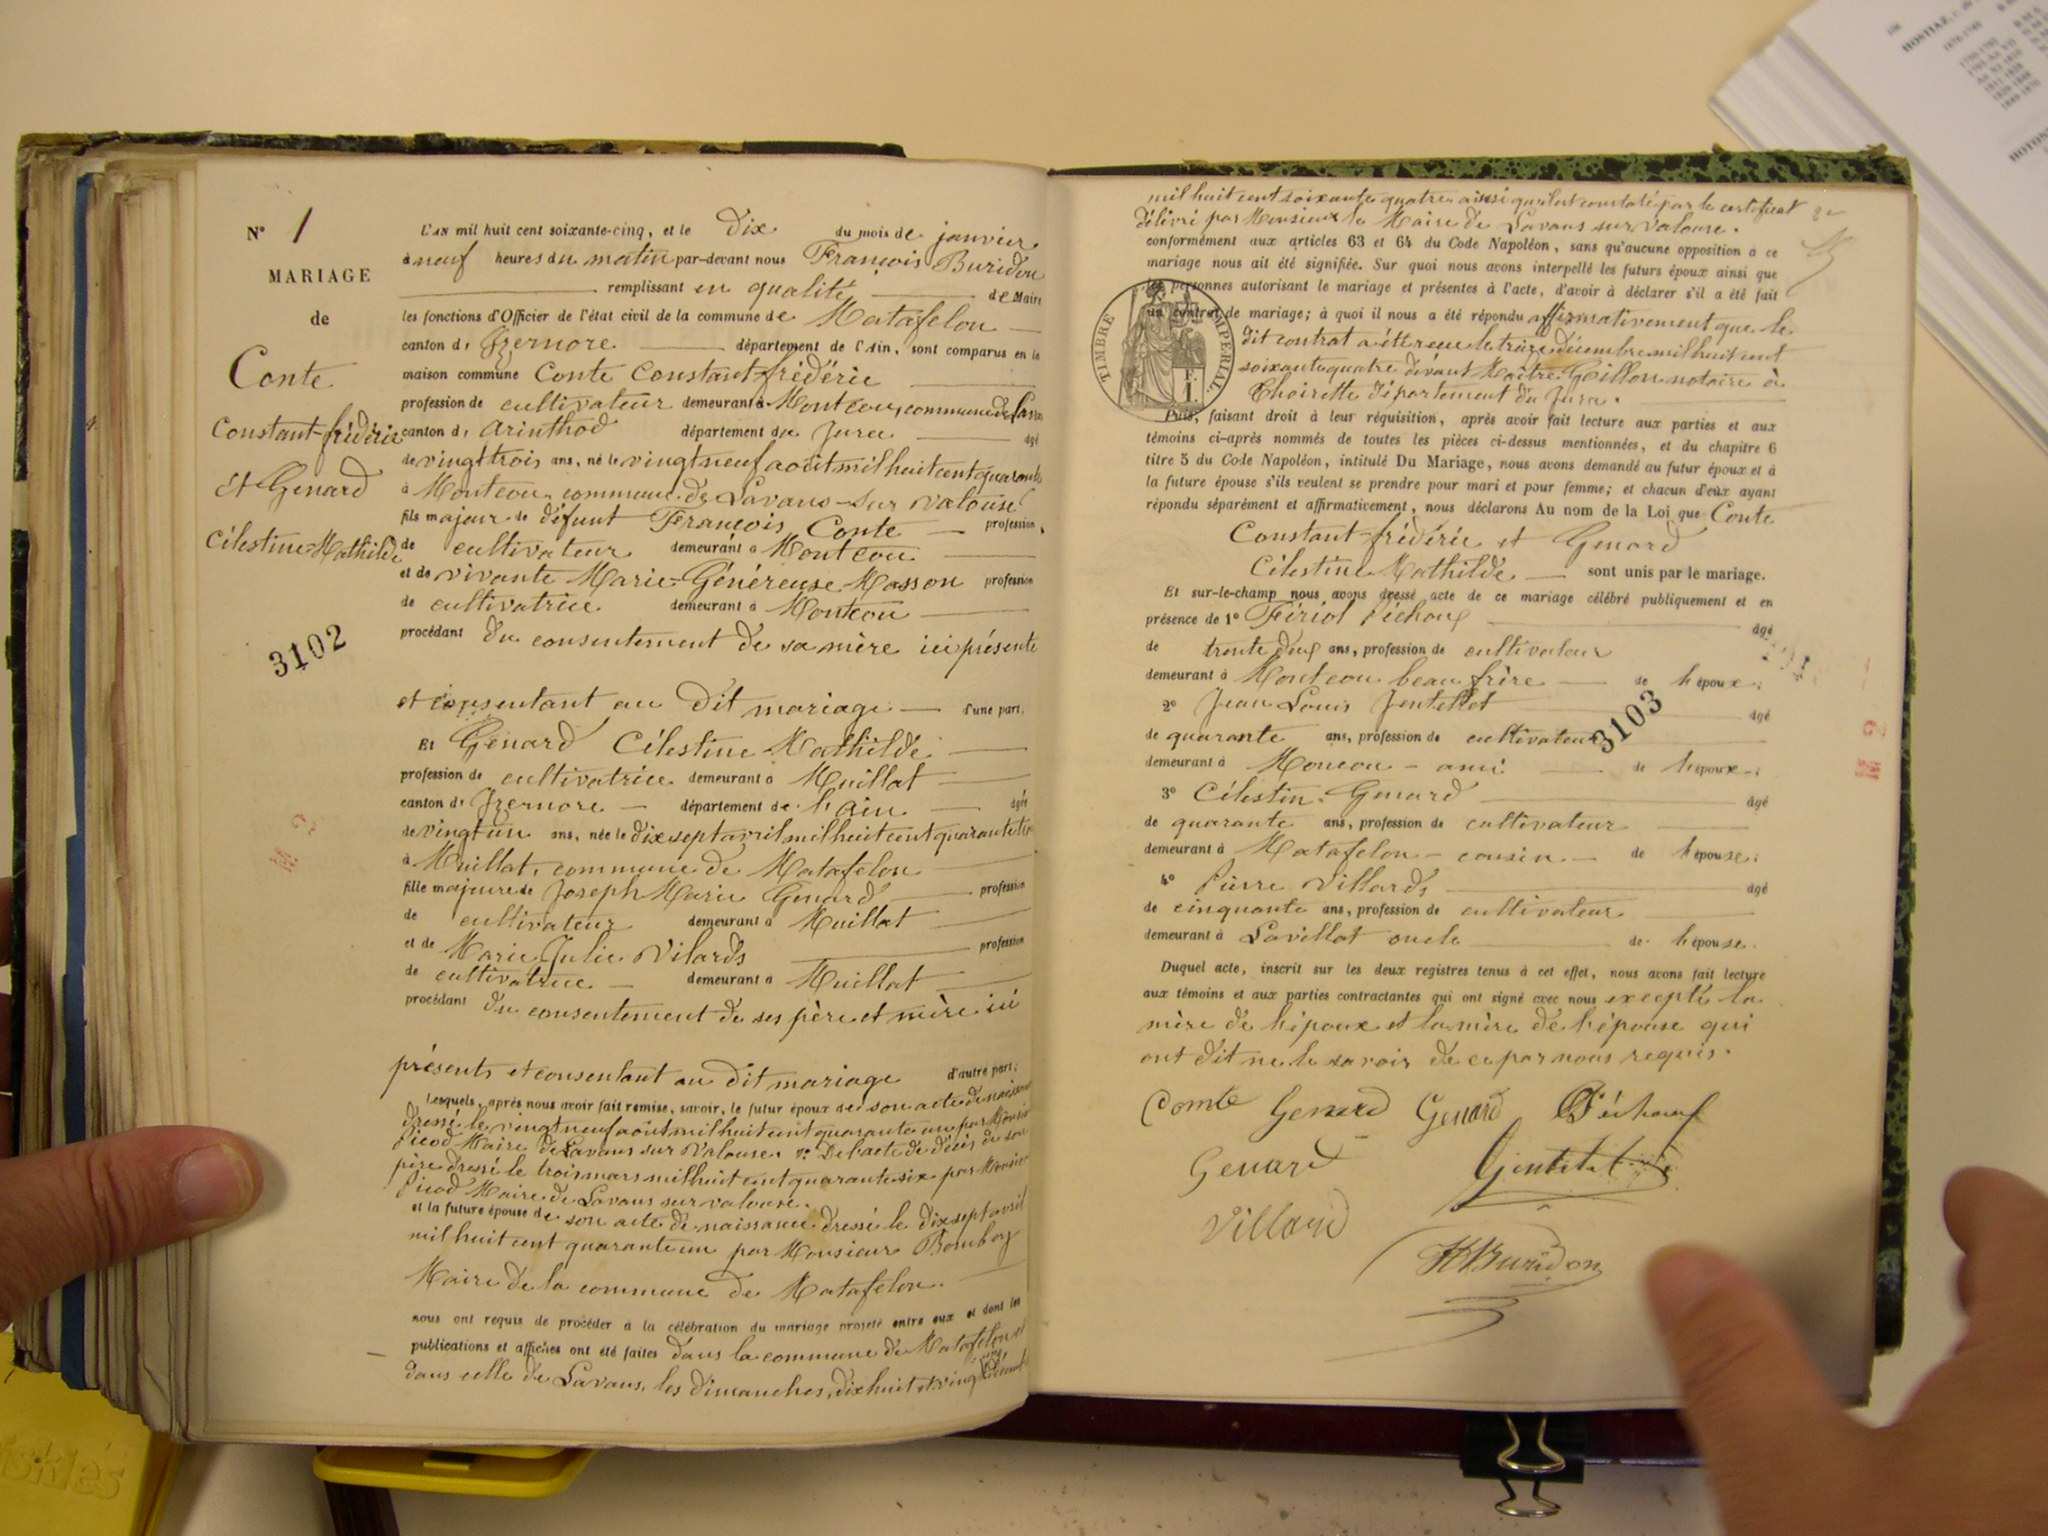 N° 1
MARIAGE
de
Conte
Constant-frédéric
et Genard
Célestine Mathilde
3102
L'AN mil huit cent soixante-cinq, et le dix du mois de janvier
à neuf heures du matin par-devant nous François Buridon
remplissant en qualité de Maire
les fonctions d'Officier de l'état civil de la commune de Matafelon
canton d'Izernore département de l'Ain, sont comparus en la
maison commune Conte Constant-frédéric
profession de cultivateur demeurant à Montcou, commune de
canton d'Arinthod département du Jura âgé
de vingt trois ans, né le vingt neuf août mil huit cent quarante
à Montcou commune de Lavans-sur Valouse
fils majeur de défunt François Conte profession
de cultivateur demeurant à Montcou
et de vivante Marie-Généreuse Masson profession
de cultivatrice demeurant à Montcou
procédant du consentement de sa mère ici présente
et consentant au dit mariage d'une part;
Et Genard Célestine Mathilde
profession de cultivatrice demeurant à Muillat
canton d'Izernore département de l'ain âgée
de vingt un ans, née le dix sept avril mil huit cent quarante
à Muillat, commune de Matafelon
fille majeure de Joseph Marie Genard profession
de cultivateur demeurant à Muillat
et de Marie Julie Vilards profession
de cultivatrice demeurant à Muillat
procédant du consentement de ses père et mère ici
présents et consentant au dit mariage d'autre part;
Lesquels, après nous avoir fait remise, savoir, le futur époux de son acte de naissance
dressé le vingt neuf août mil huit cent quarante un par Monsieur
Picod Maire de Lavans sur Valouse. 2° De l'acte de décès de son
père dressé le trois mars mil huit cent quarante six par Monsieur
Picod Maire de Lavans sur valouse.
et la future épouse de son acte de naissance dressé le dix sept avril
mil huit cent quarante un par Monsieur
Maire de la commune de Matafelon.
nous ont requis de procéder à la célébration du mariage projeté entre eux et dont les
publications et affiches ont été faites dans la commune de Matafelon et
dans celle de Lavans, les dimanches, dix huit et vingt
mil huit cent soixante quatre ainsi qu'il est constaté par le certificat
délivré par Monsieur le Maire de Lavans sur valouse.
conformément aux articles 63 et 64 du Code Napoléon, sans qu'aucune opposition à ce
mariage nous ait été signifiée. Sur quoi nous avons interpellé les futurs époux ainsi que
les personnes autorisant le mariage et présentes à l'acte, d'avoir à déclarer s'il a été fait
un contrat de mariage; à quoi il nous a été répondu affirmativement que le
dit contrat a été reçu le treize décembre mil huit cent
soixante quatre devant Maître Gillon notaire à
Thoirette département du Jura.
TIMBRE IMPÉRIAL
Puis, faisant droit à leur réquisition, après avoir fait lecture aux parties et aux
témoins ci-après nommés de toutes les pièces ci-dessus mentionnées, et du chapitre 6
titre 5 du Code Napoléon, intitulé Du Mariage, nous avons demandé au futur époux et à
la future épouse s'ils veulent se prendre pour mari et pour femme; et chacun d'eux ayant
répondu séparément et affirmativement, nous déclarons Au nom de la Loi que Conte
Constant-frédéric et Genard
Célestine Mathilde sont unis par le mariage.
Et sur-le-champ nous avons dressé acte de ce mariage célébré publiquement et en
présence de 1° Fériol Péchoux âgé
de trente deux ans, profession de cultivateur
demeurant à Montcou beau frère de l'époux;
2° Jean Louis Jentellet âgé
de quarante ans, profession de cultivateur
3103
demeurant à Moncou - ami de l'époux;
3° Célestin Genard âgé
de quarante ans, profession de cultivateur
demeurant à Matafelon - cousin de l'épouse;
4° Pierre Villards âgé
de cinquante ans, profession de cultivateur
demeurant à Lavillat oncle de l'épouse.
Duquel acte, inscrit sur les deux registres tenus à cet effet, nous avons fait lecture
aux témoins et aux parties contractantes qui ont signé avec nous excepté la
mère de l'époux et la mère de l'épouse qui
ont dit ne le savoir de ce par nous requis.
Comte Genard Genard Péchoux
Genard
Villard
Buridon
HOSTIAZ